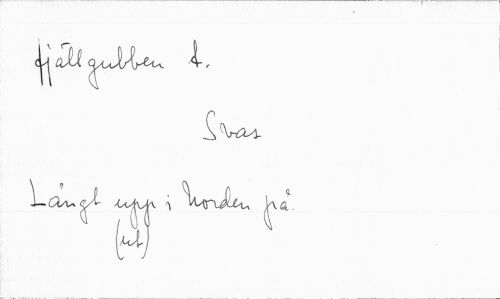 fjällgubben A.
Svar
Långt upp i Norden på.
(ut)